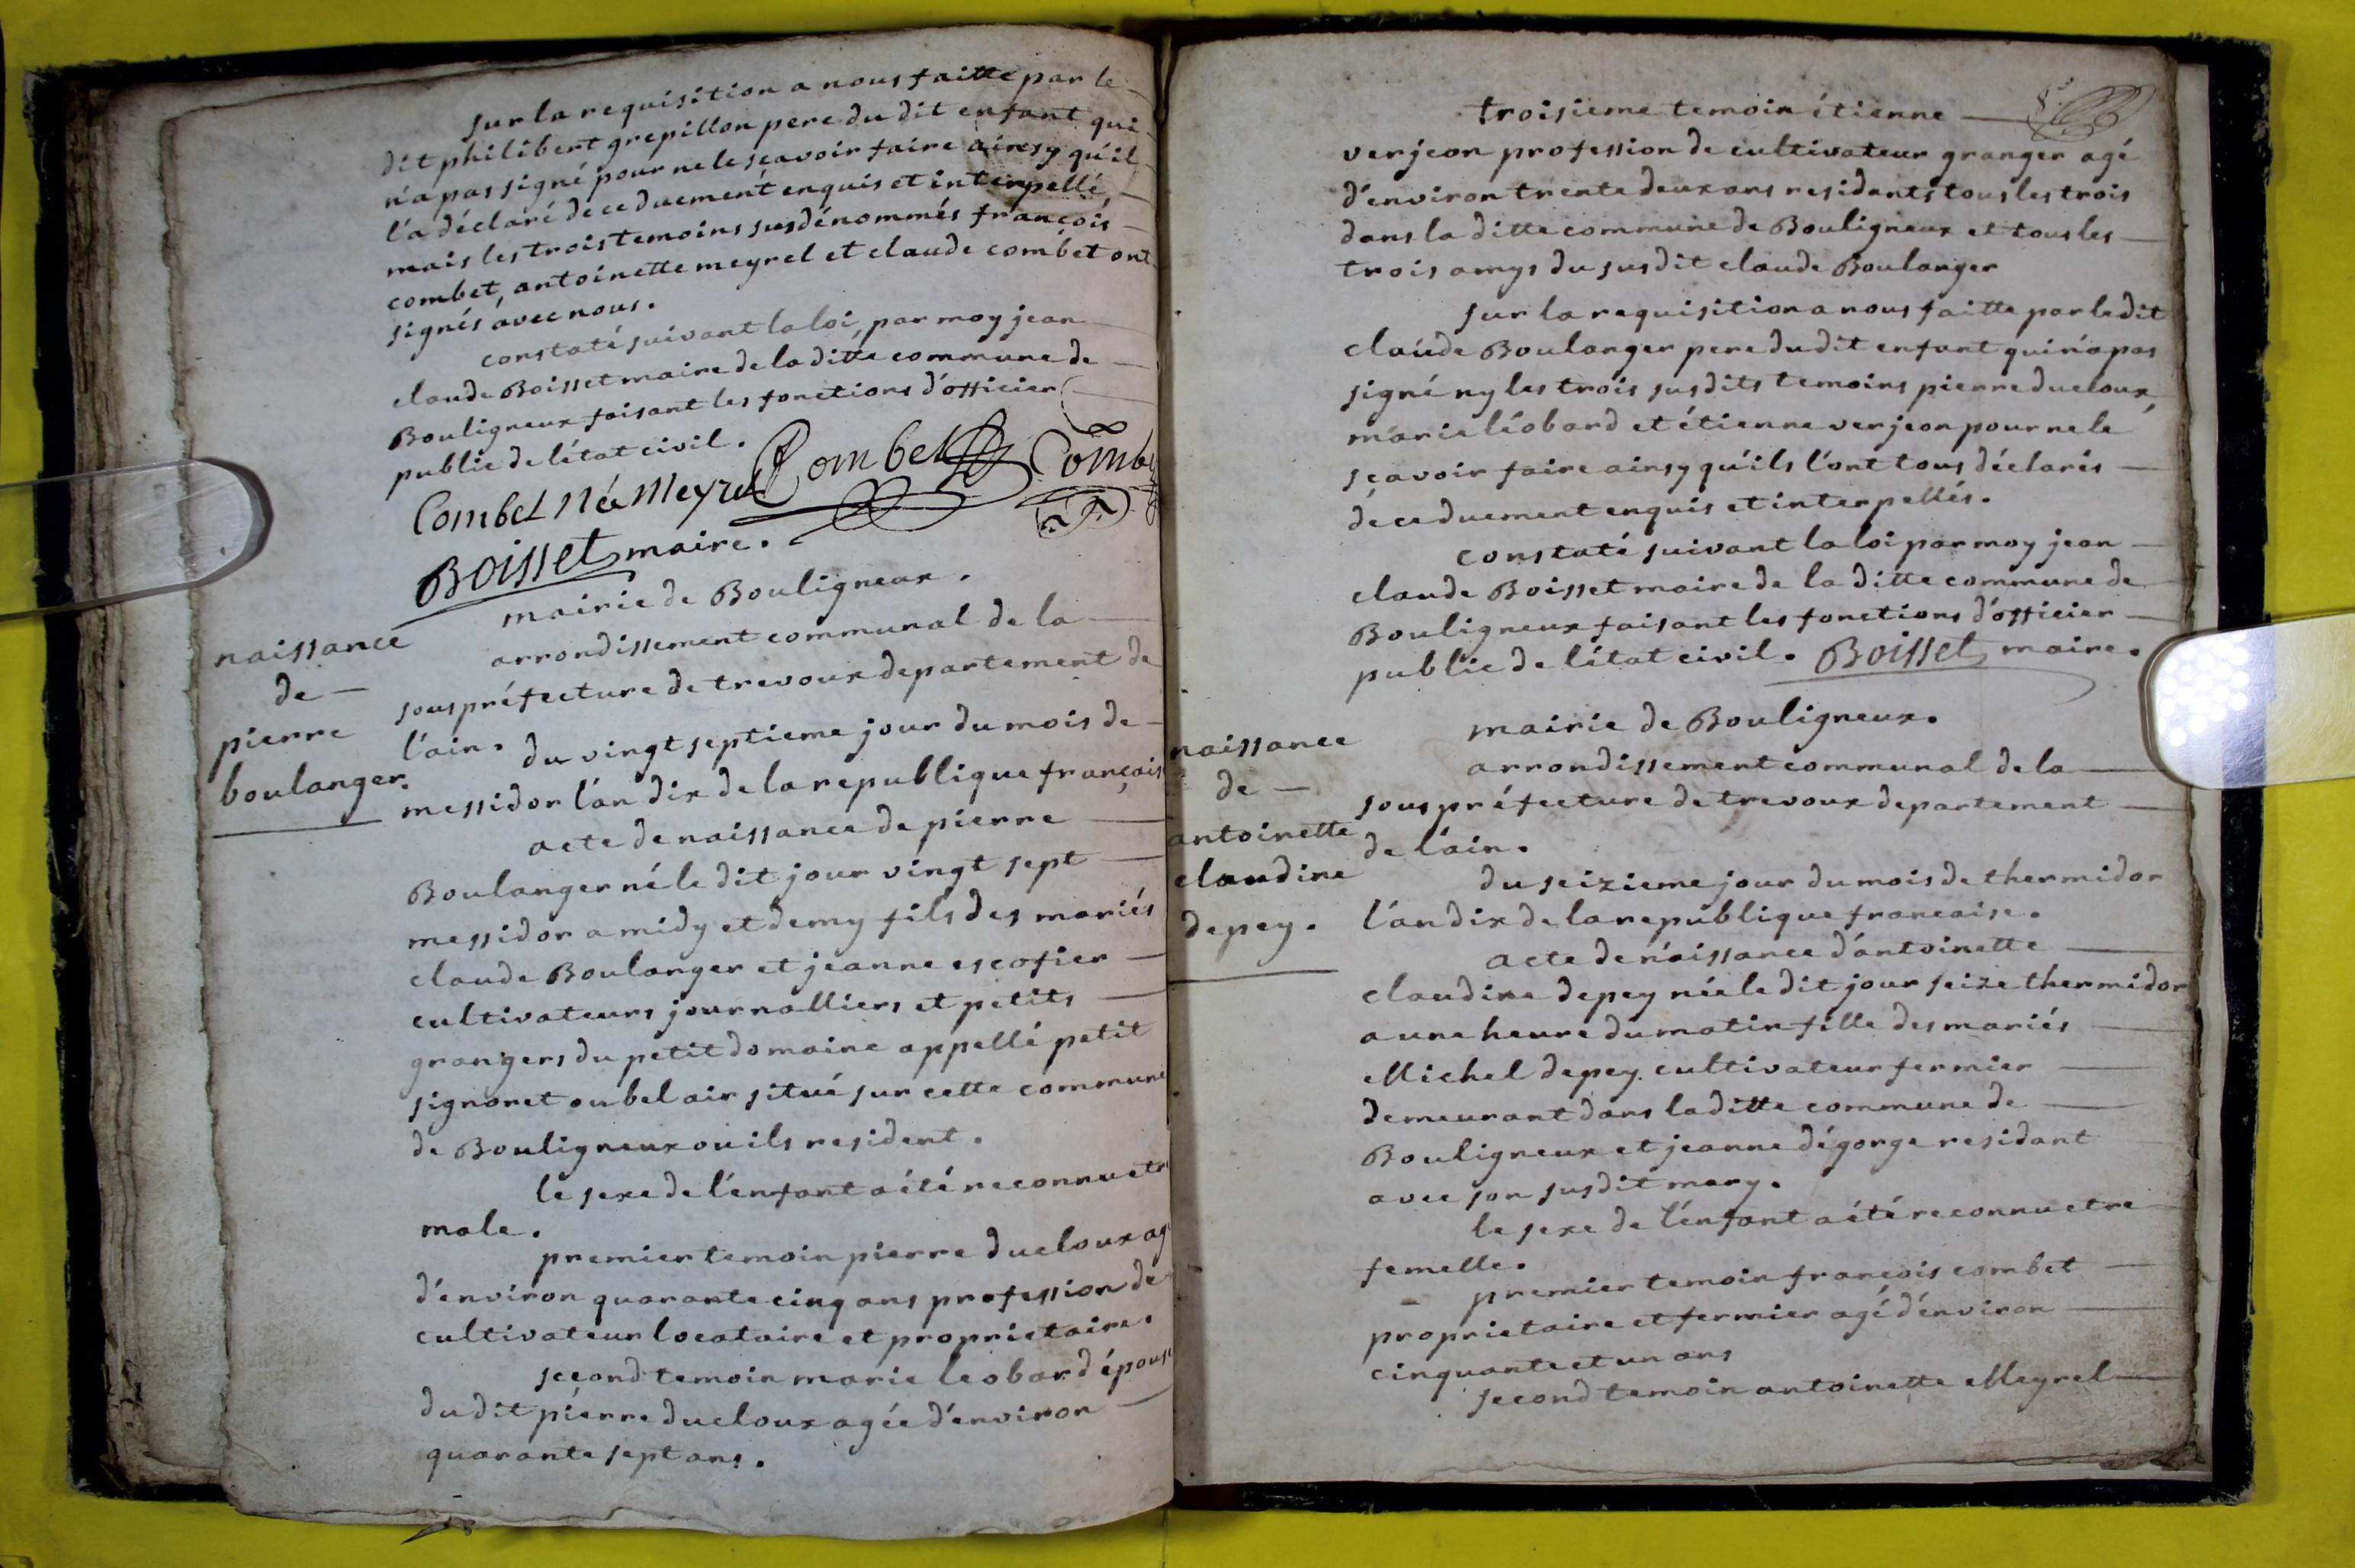 sur la requisition a nous faitte par le
dit philibert grepillon pere du dit enfant qui
n'a pas signé pour ne le sçavoir faire ainsy qu'il
l'a déclaré de ce duement enquis et interpellé
mais les trois temoins susdénommés françois
combet, antoinette meyrel et claude combet ont
signés avec nous.
constaté suivant la loi, par moy jean
claude Boisset maire de la ditte commune de
Bouligneux faisant les fonctions d'officier
public de l'état civil.
Combet Née Meyrel Combet Combet
Boisset maire.
mairie de Bouligneux.
arrondissement communal de la
sous préfecture de trevoux departement de
l'ain.
naissance
de
pierre
boulanger.
du vingt septieme jour du mois de
messidor l'an dix de la republique française
acte de naissance de pierre
Boulanger né le dit jour vingt sept
messidor a midy et demy fils des mariés
claude Boulanger et jeanne escofier
cultivateurs journalliers et petits
grangers du petit domaine appellé petit
signoret ou bel air situé sur cette commune
de Bouligneux ou ils resident.
le sexe de l'enfant a été reconnu etre
male.
premier temoin pierre ducloux agé
d'environ quarante cinq ans profession de
cultivateur locataire et proprietaire.
second temoin marie leobard épouse
du dit pierre ducloux agée d'environ
quarante sept ans.
troisieme temoin étienne
verjeon profession de cultivateur granger agé
d'environ trente deux ans residants tous les trois
dans la ditte commune de Bouligneux et tous les
trois amys du susdit claude Boulanger
sur la requisition a nous faitte par le dit
claude Boulanger pere du dit enfant qui n'a pas
signé ny les trois susdits temoins pierre ducloux,
marie léobard et étienne verjeon pour ne le
sçavoir faire ainsy qu'ils l'ont tous déclarés
de ce duement enquis et interpellés.
constaté suivant la loi par moy jean
claude Boisset maire de la ditte commune de
Bouligneux faisant les fonctions d'officier
public de l'état civil. Boisset maire.
mairie de Bouligneux.
arrondissement communal de la
sous préfecture de trevoux departement
de l'ain.
naissance
de
antoinette
claudine
depey.
du seizieme jour du mois de thermidor
l'an dix de la republique francaise.
acte de naissance d'antoinette
claudine depey née le dit jour seize thermidor
a une heure du matin fille des mariés
Michel depey cultivateur fermier
demeurant dans la ditte commune de
Bouligneux et jeanne dégorge residant
avec son susdit mary.
le sexe de l'enfant a été reconnu etre
femelle.
premier temoin françois combet
proprietaire et fermier agé d'environ
cinquante et un ans
second temoin antoinette Meyrel